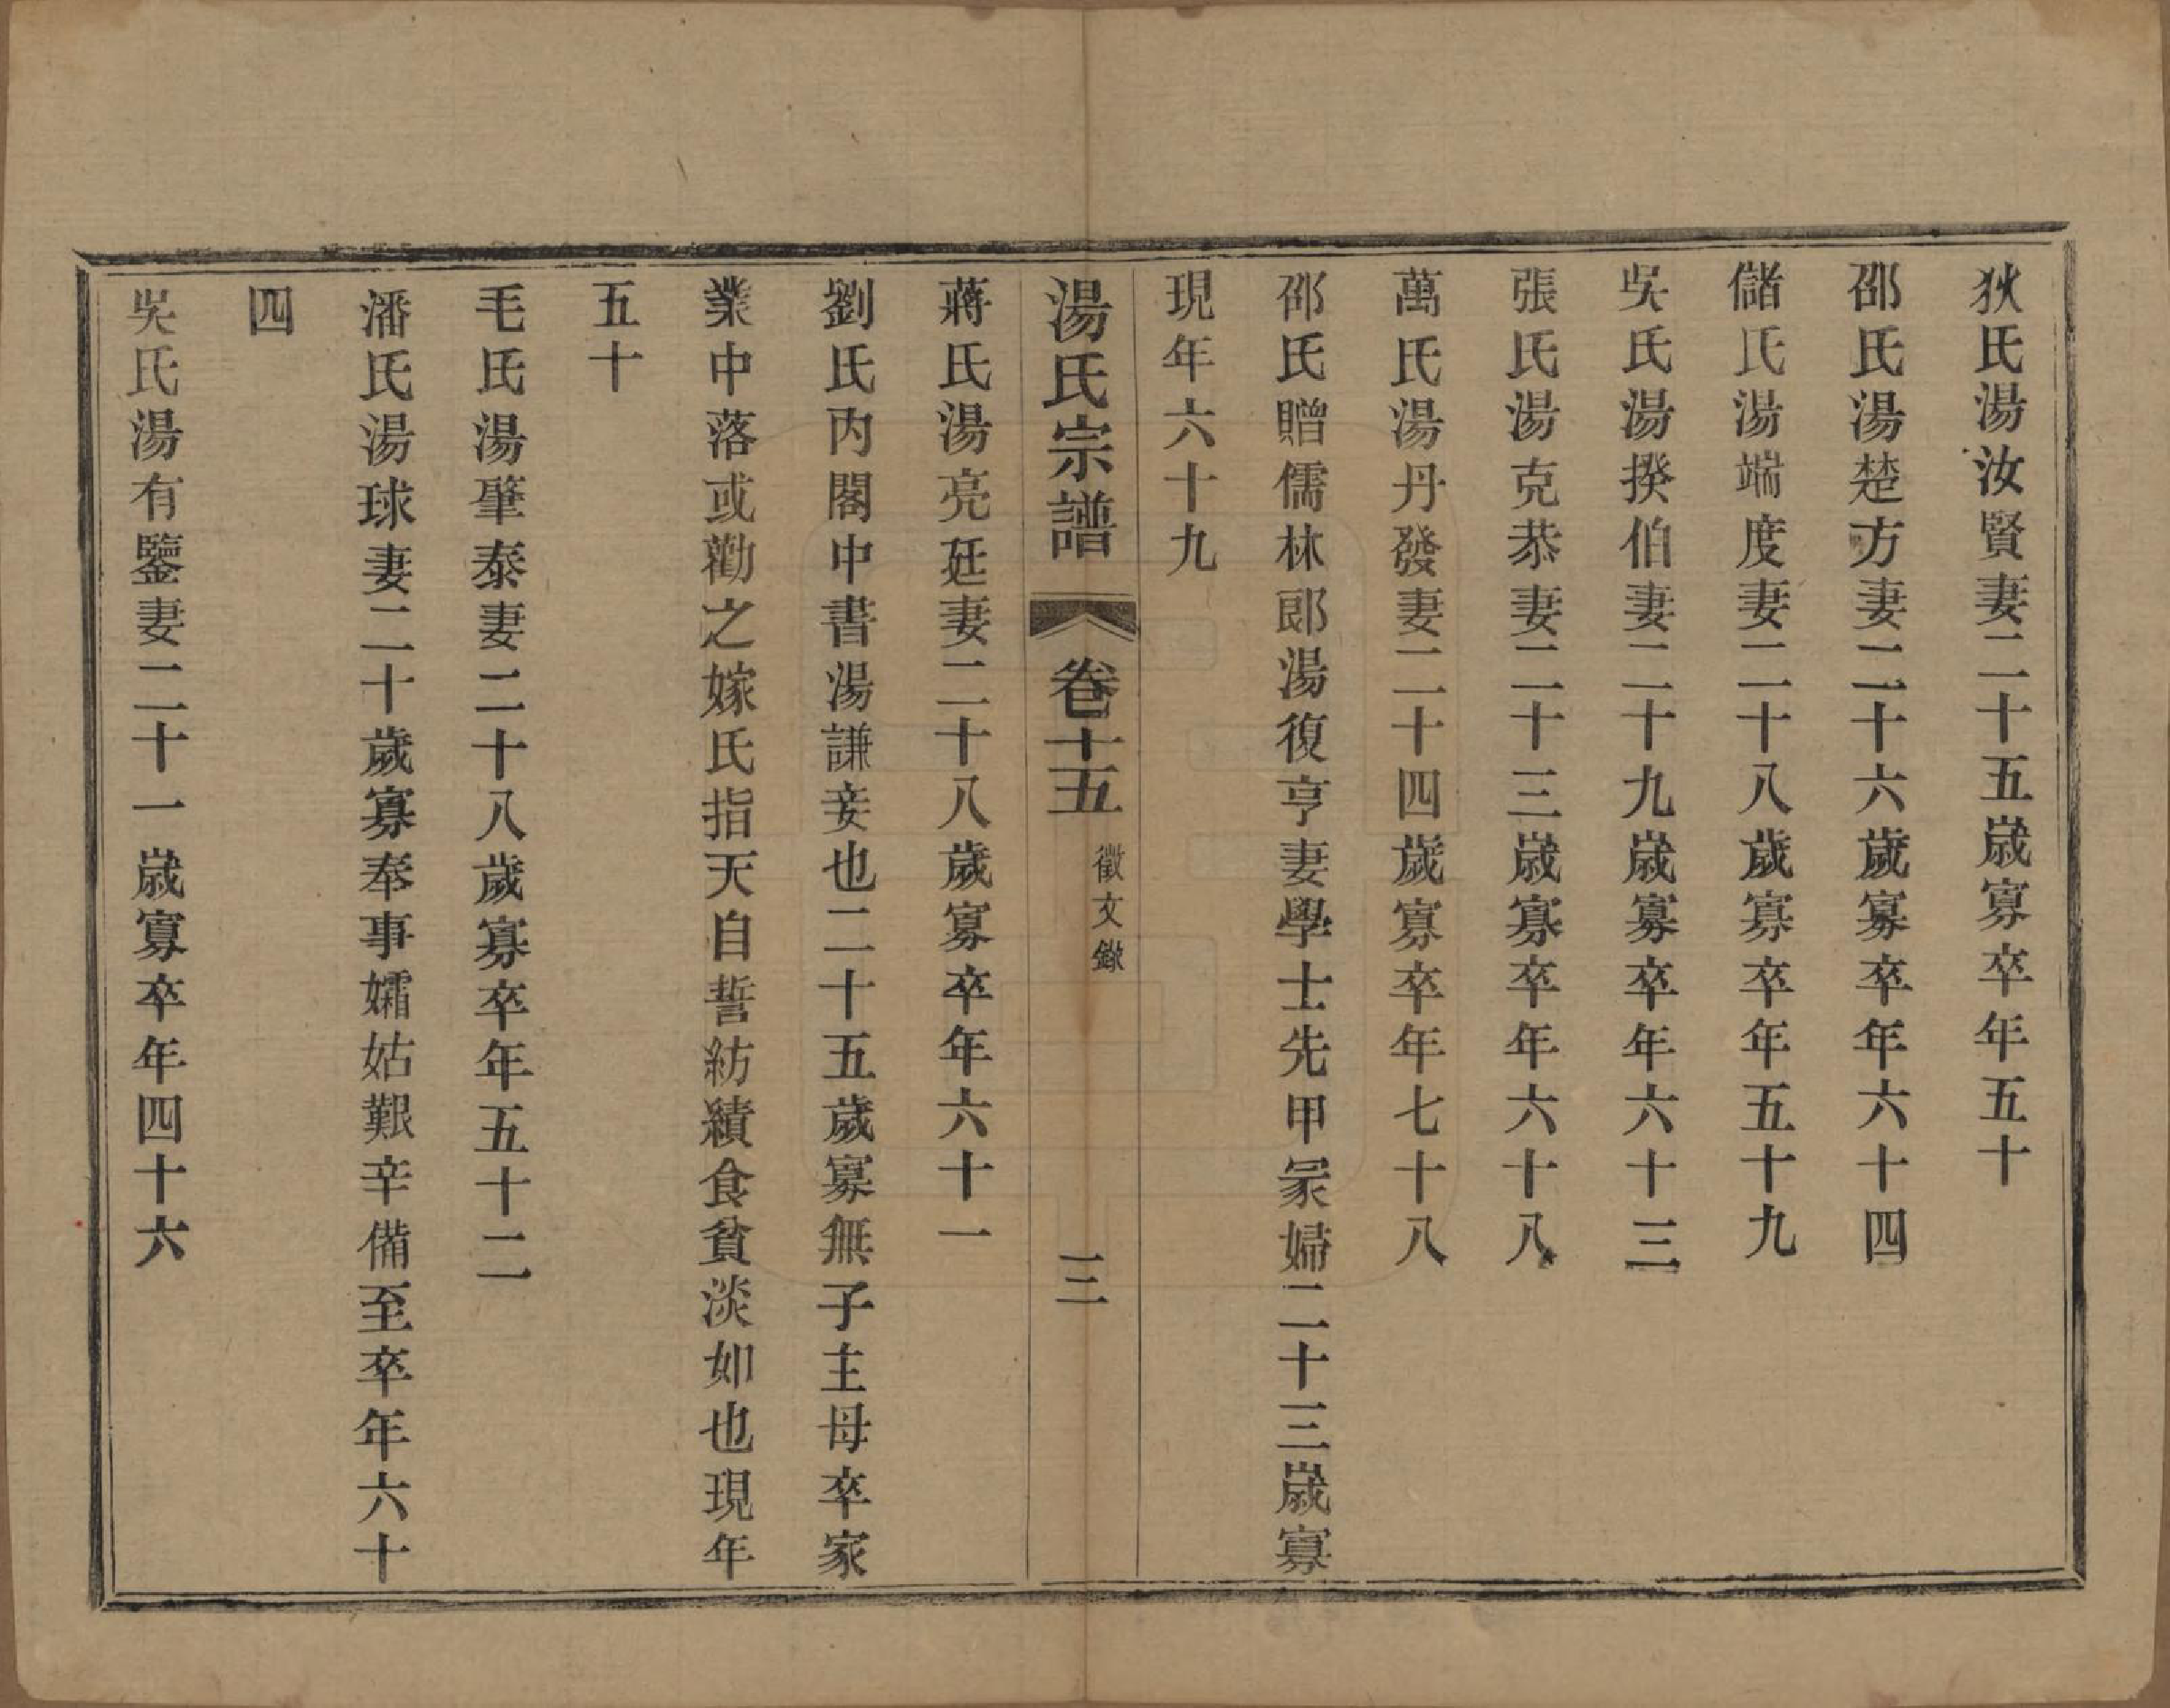 狄氏湯汝賢妻二十五歲寡卒年五十
邵氏湯楚方妻二十六歲寡卒年六十四
儲氏湯端度妻二十八歲寡卒年五十九
吳氏湯揆伯妻二十九歲寡卒年六十三
張氏湯克恭妻二十三歲寡卒年六十八
萬氏湯丹發妻二十四歲寡卒年七十八
邵氏贈儒林郎湯復亨妻學士先甲冢婦二十三歲寡
現年六十九
湯氏宗譜 卷十五 徵文錄 三
蔣氏湯亮廷妻二十八歲寡卒年六十一
劉氏內閣中書湯謙妾也二十五歲寡無子主母卒家
業中落或勸之嫁氏指天自誓紡績食貧淡如也現年
五十
毛氏湯肇泰妻二十八歲寡卒年五十二
潘氏湯球妻二十歲寡奉事孀姑艱辛備至卒年六十
四
吳氏湯有鑒妻二十一歲寡卒年四十六